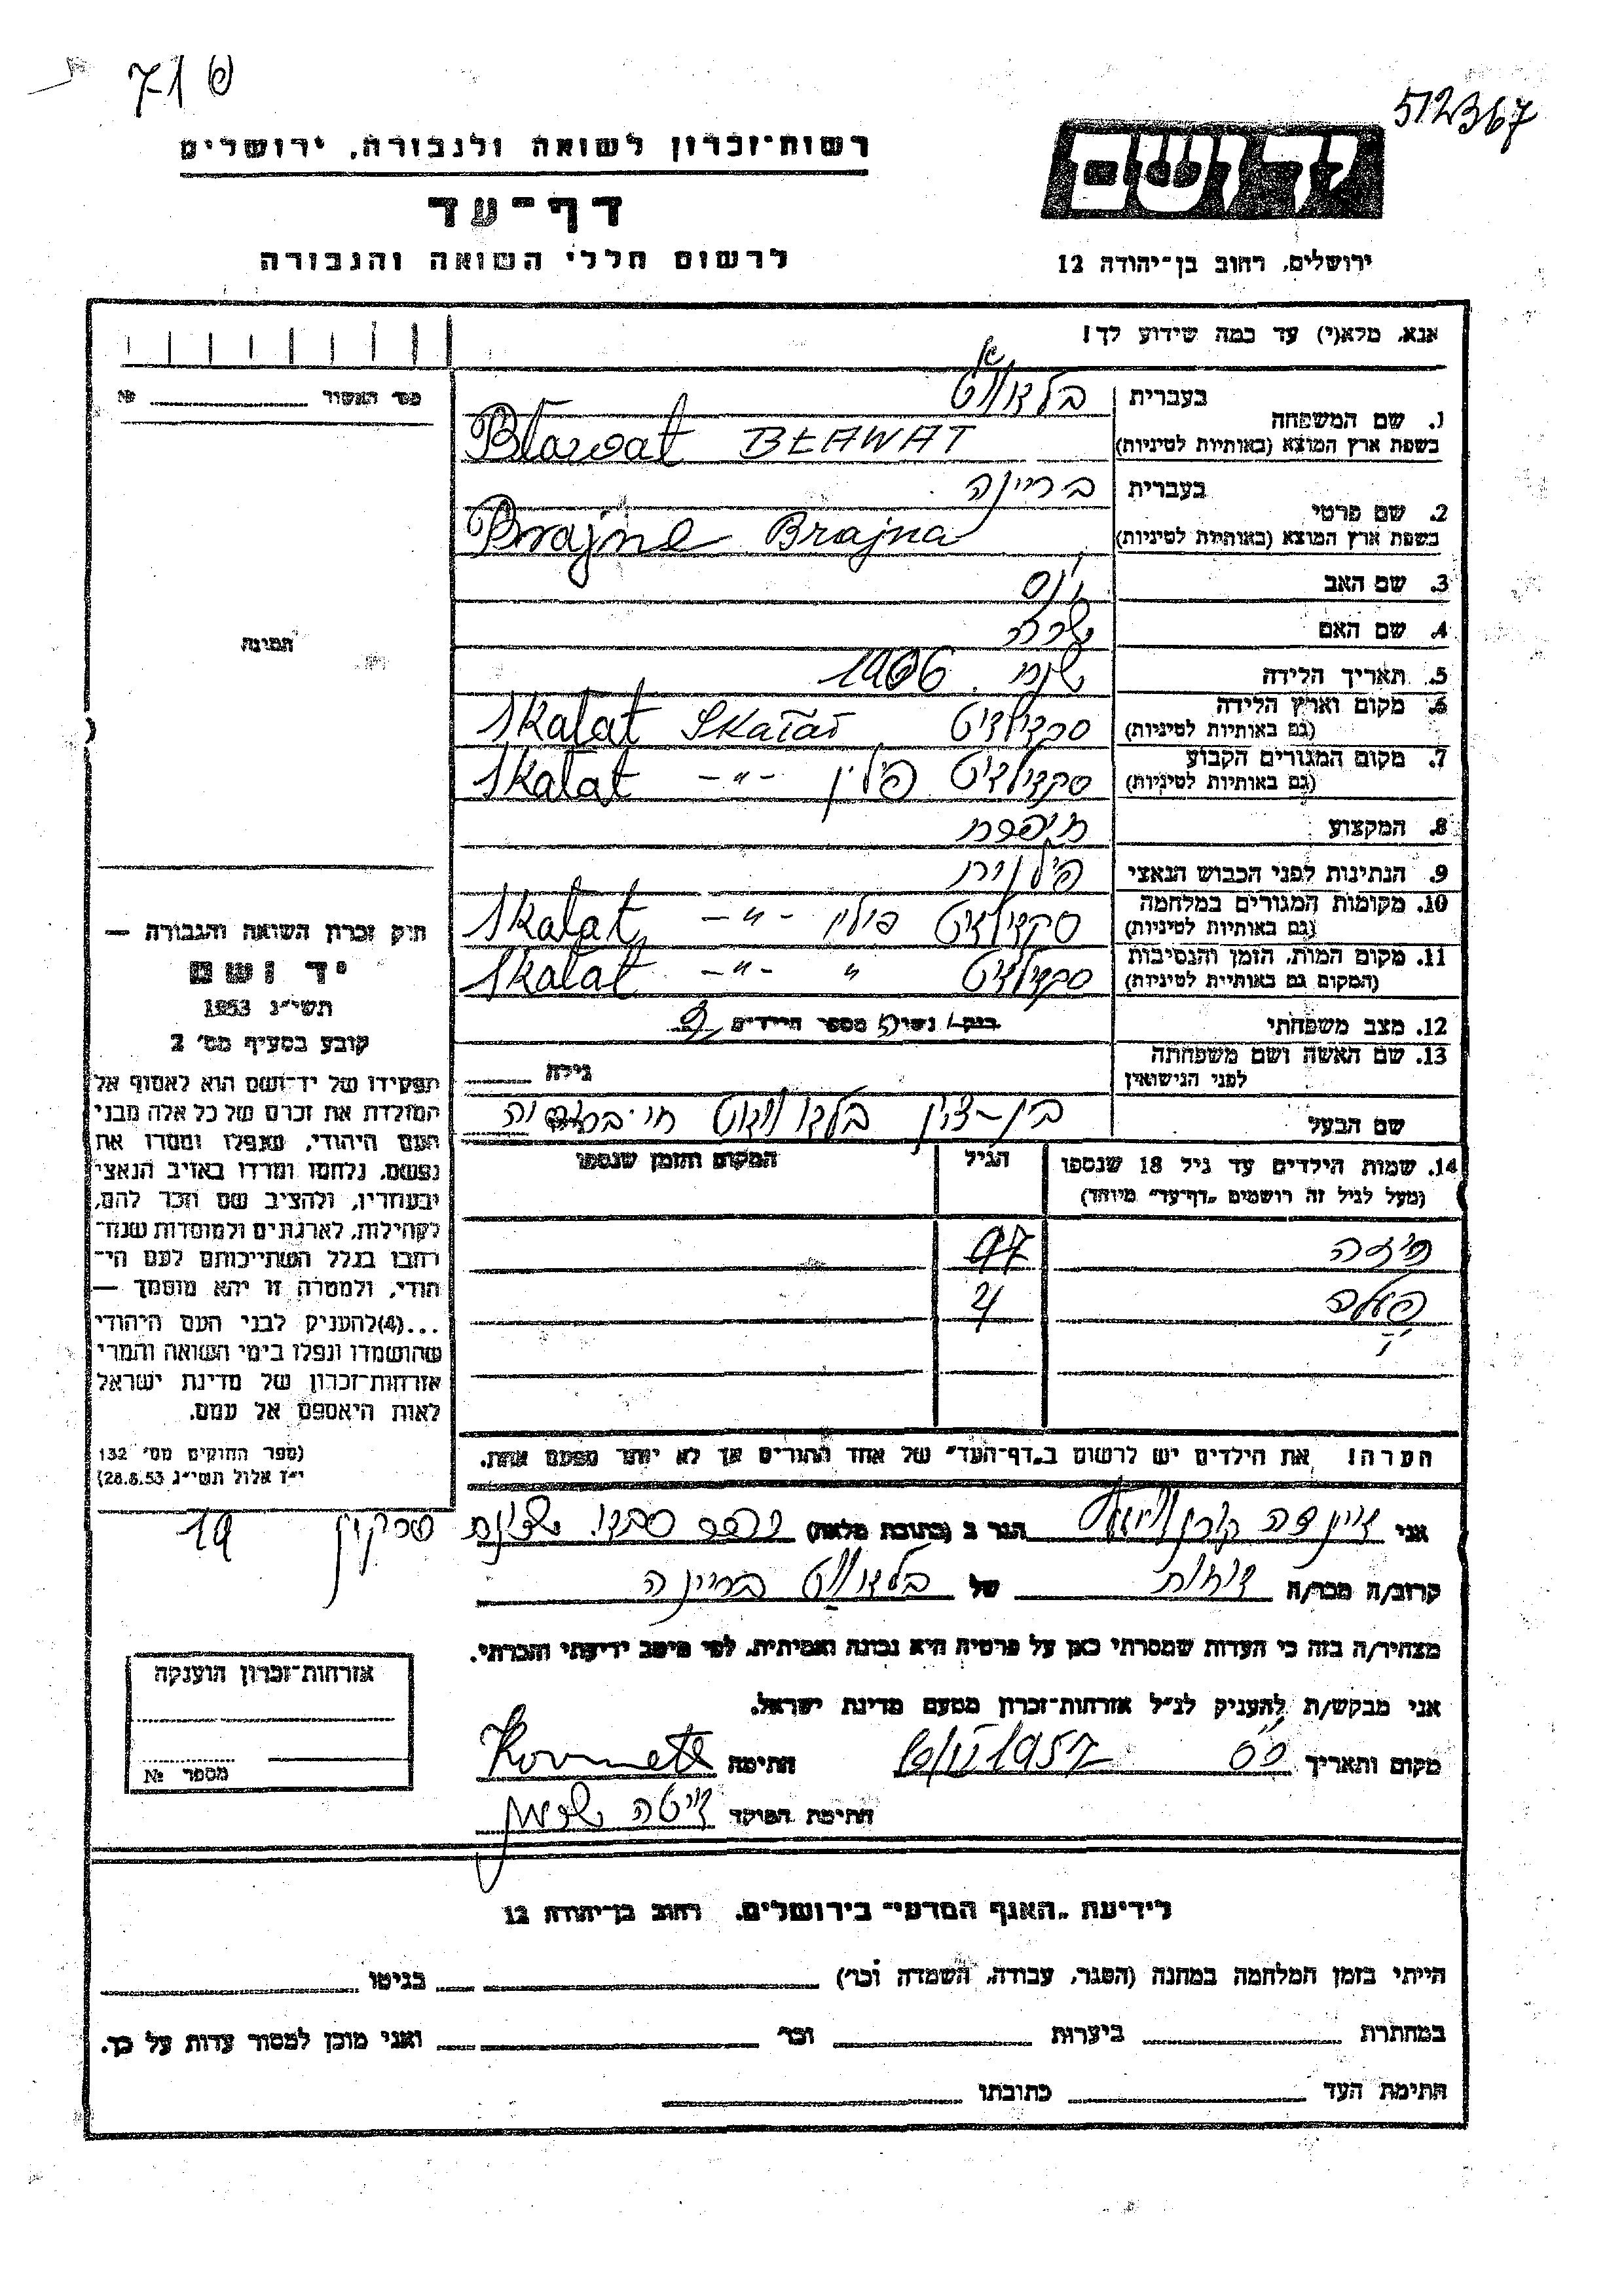 פ 71
512367
רשות־זכרון לשואה ולגבורה, ירושלים
יד ושם
דף־עד
לרשום חללי השואה והגבורה
ירושלים, רחוב בן־יהודה 12
אנא, מלא(י) עד כמה שידוע לך!
מס׳ האשור № 
1. שם המשפחה
בעברית
בשפת ארץ המוצא (באותיות לטיניות)
Bławat BŁAWAT
2. שם פרטי
בעברית בריינה
בשפת ארץ המוצא (באותיות לטיניות)
Brajne Brajna
3. שם האב
4. שם האם שרה
5. תאריך הלידה שנת 1906
6. מקום וארץ הלידה
(גם באותיות לטיניות)
Skałat Skałat
7. מקום המגורים הקבוע
(גם באותיות לטיניות)
פולין -״- Skałat
8. המקצוע תופרת
9. הנתינות לפני הכבוש הנאצי פולנית
10. מקומות המגורים במלחמה
(גם באותיות לטיניות)
פולין -״- Skałat
11. מקום המות, הזמן והנסיבות
(המקום גם באותיות לטיניות)
״ -״- Skałat
12. מצב משפחתי
מספר הילדים 2
13. שם האשה ושם משפחתה
לפני הנישואין
גילה
שם הבעל בן-ציון
14. שמות הילדים עד גיל 18 שנספו
(מעל לגיל זה רושמים „דף־עד״ מיוחד)
הגיל
המקום והזמן שנספו
7
4
הערה! את הילדים יש לרשום ב„דף־העד״ של אחד ההורים אך לא יותר מפעם אחת.
תמונה
חוק זכרון השואה והגבורה —
יד ושם
תשי״ג 1953
קובע בסעיף מס׳ 2
תפקידו של יד־ושם הוא לאסוף אל
המולדת את זכרם של כל אלה מבני
העם היהודי, שנפלו ומסרו את
נפשם, נלחמו ומרדו באויב הנאצי
ובעוזריו, ולהציב שם וזכר להם,
לקהילות, לארגונים ולמוסדות שנח־
רבו בגלל השתייכותם לעם הי־
הודי, ולמטרה זו יהא מוסמך —
...(4)להעניק לבני העם היהודי
שהושמדו ונפלו בימי השואה והמרי
אזרחות־זכרון של מדינת ישראל
לאות היאספם אל עמם.
(ספר החוקים מס׳ 132
י״ז אלול תשי״ג 28.8.53)
אני הגר ב (כתובת מלאה) 19
קרוב/ה מכר/ה של בריינה
מצהיר/ה בזה כי העדות שמסרתי כאן על פרטיה היא נכונה ואמיתית, לפי מיטב ידיעתי והכרתי.
אני מבקש/ת להעניק לנ״ל אזרחות־זכרון מטעם מדינת ישראל.
מקום ותאריך 1957 חתימה
חתימת הפוקד
אזרחות־זכרון הוענקה
מספר №
לידיעת „האגף המדעי״ בירושלים, רחוב בן־יהודה 12
הייתי בזמן המלחמה במחנה (הסגר, עבודה, השמדה וכו׳) בגיטו
במחתרת ביערות וכו׳ ואני מוכן למסור עדות על כך.
חתימת העד כתובתו